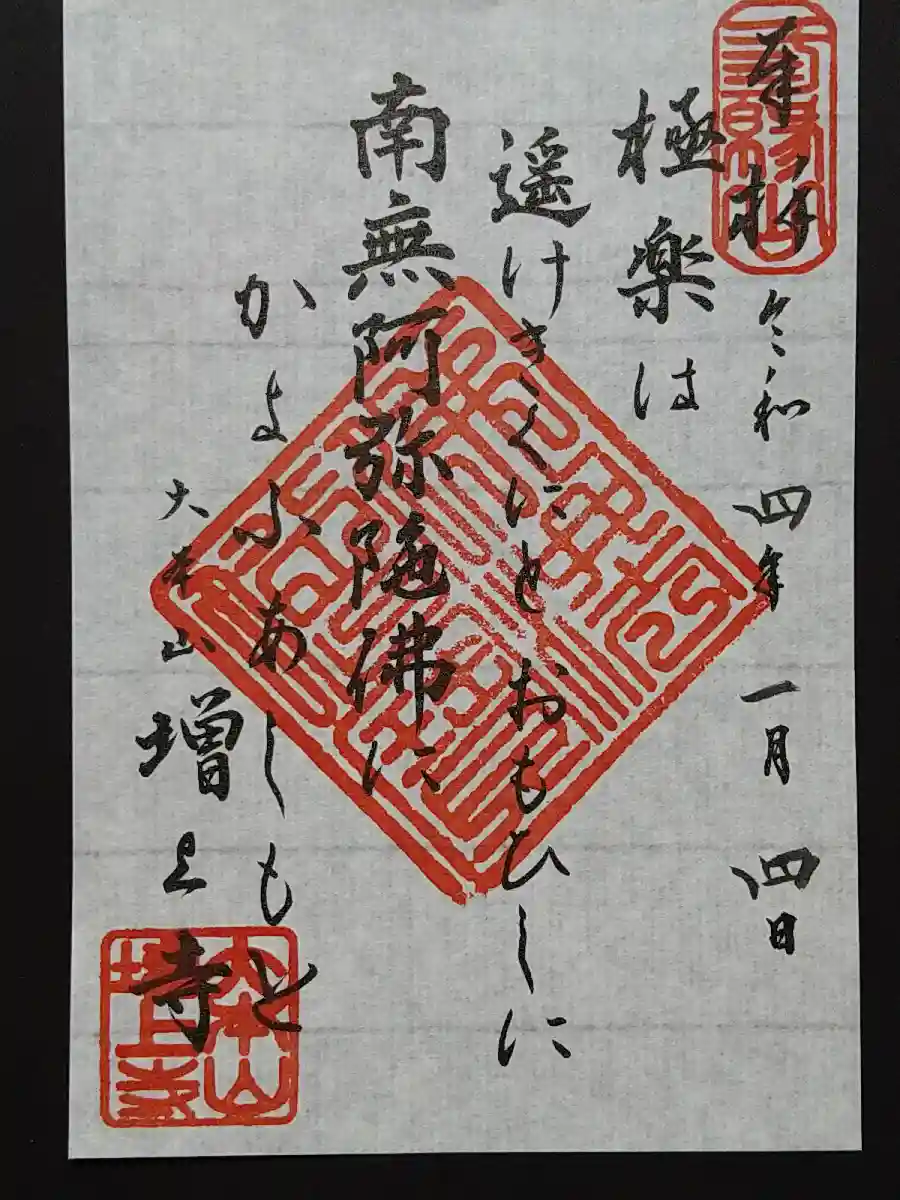 奉拝
令和四年一月四日
極楽は
遥けきくにとおもひしに
南無阿弥陀佛に
かよふあしもと
大本山
増上寺
大本山
増上寺